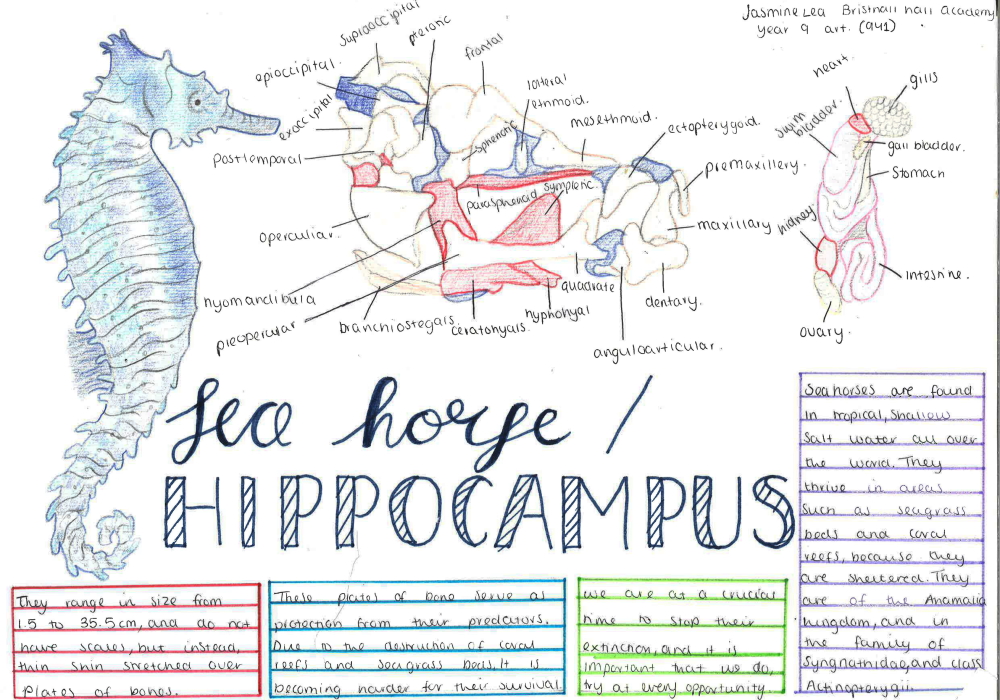 Jasmine Lea Bristnall hall Academy
Year 9 art. (941)
supraoccipital
pterotic
frontal
epioccipital.
lateral
ethmoid.
exoccipital
sphenotic
mesethmoid.
ectopterygoid.
posttemporal
premaxillery.
parasphenoid
symplectic.
operculiar.
maxillary
hyomandibula
quadrate
dentary.
preopercular
branchiostegals.
ceratohyals.
hyphohyal
anguloarticular.
heart.
gills
swim
bladder.
gall bladder.
Stomach
kidney
intestine.
ovary.
Sea horse /
HIPPOCAMPUS
Seahorses are found
in tropical, shallow
salt water all over
the world. They
thrive in areas
such as seagrass
beds and coral
reefs, because they
are sheltered. They
are of the Anamalia
kingdom, and in
the family of
Syngnathidae, and class
Actinopterygii.
They range in size from
1.5 to 35.5cm, and do not
have scales, but instead,
thin skin stretched over
plates of bones.
These plates of bone serve as
protection from their predators.
Due to the destruction of coral
reefs and seagrass beds, it is
becoming harder for their survival.
we are at a crucial
time to stop their
extinction, and it is
important that we do,
try at every opportunity.